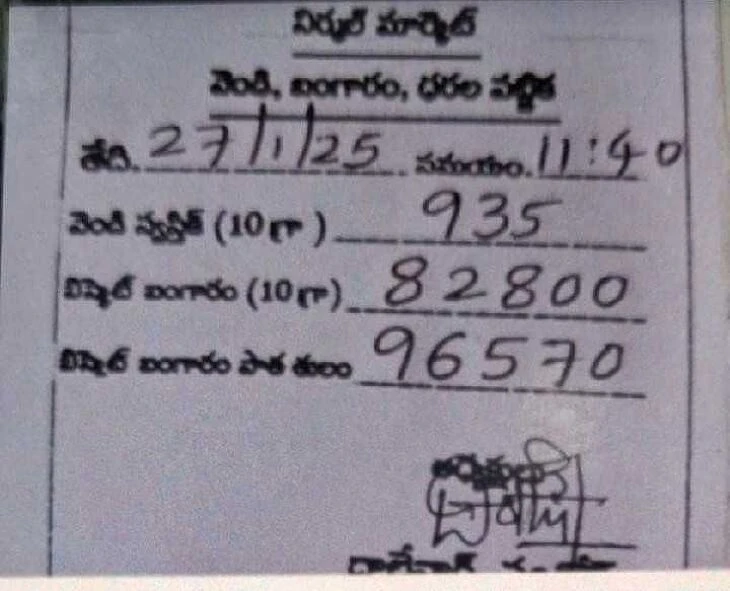 నిర్మల్ మార్కెట్
వెండి, బంగారం, ధరల పట్టిక
తేది. 27/1/25 . సమయం. 11:40
వెండి స్వస్తిక్ (10 గ్రా ) 935
బిస్కెట్ బంగారం (10 గ్రా) 82800
బిస్కెట్ బంగారం పాత తులం 96570
అధ్యక్షులు